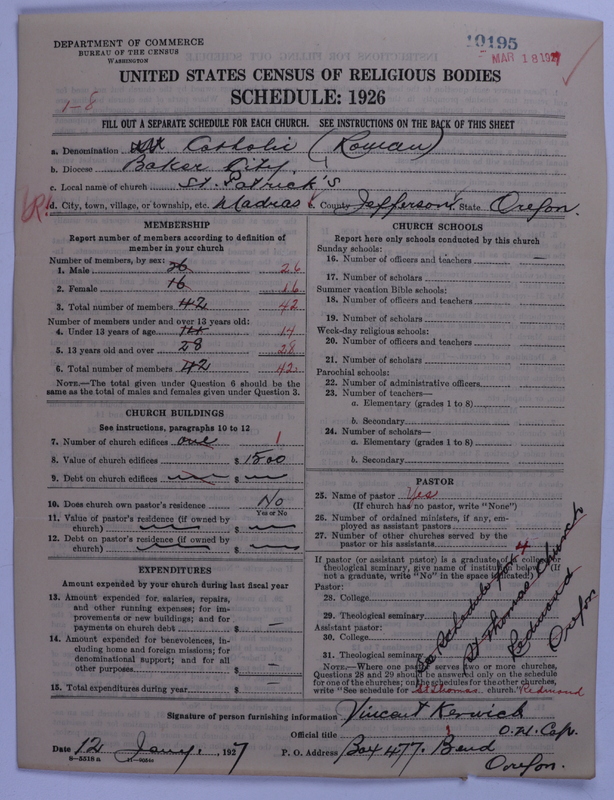 DEPARTMENT OF COMMERCE
BUREAU OF THE CENSUS
WASHINGTON
10195
MAR 18 192
UNITED STATES CENSUS OF RELIGIOUS BODIES
SCHEDULE: 1926
1-8
FILL OUT A SEPARATE SCHEDULE FOR EACH CHURCH. SEE INSTRUCTIONS ON THE BACK OF THIS SHEET
a. Denomination Catholic (Roman)
b. Diocese Baker City,
c. Local name of church St. Patrick's
d. City, town, village, or township, etc. Madras e. County Jefferson f. State Oregon.
MEMBERSHIP
Report number of members according to definition of member in your church
Number of members, by sex:
1. Male 26 26
2. Female 16 16
3. Total number of members 42 42
Number of members under and over 13 years old:
4. Under 13 years of age 14 14
5. 13 years old and over 28 28
6. Total number of members 42 42
NOTE.—The total given under Question 6 should be the same as the total of males and females given under Question 3.
CHURCH BUILDINGS
See instructions, paragraphs 10 to 12
7. Number of church edifices one 1
8. Value of church edifices $ 1500
9. Debt on church edifices $
10. Does church own pastor's residence No
Yes or No
11. Value of pastor's residence (if owned by church) $
12. Debt on pastor's residence (if owned by church) $
EXPENDITURES
Amount expended by your church during last fiscal year
13. Amount expended for salaries, repairs, and other running expenses; for improvements or new buildings; and for payments on church debt $ —
14. Amount expended for benevolences, including home and foreign missions; for denominational support; and for all other purposes $ —
15. Total expenditures during year $ —
CHURCH SCHOOLS
Report here only schools conducted by this church
Sunday schools:
16. Number of officers and teachers —
17. Number of scholars
Summer vacation Bible schools:
18. Number of officers and teachers
19. Number of scholars
Week-day religious schools:
20. Number of officers and teachers
21. Number of scholars
Parochial schools:
22. Number of administrative officers
23. Number of teachers—
a. Elementary (grades 1 to 8)
b. Secondary
24. Number of scholars—
a. Elementary (grades 1 to 8)
b. Secondary
PASTOR
25. Name of pastor Yes
(If church has no pastor, write "None")
26. Number of ordained ministers, if any, employed as assistant pastors
27. Number of other churches served by the pastor or his assistants 4
If pastor (or assistant pastor) is a graduate of a college or theological seminary, give name of institution below. (If not a graduate, write "No" in the space indicated.)
Pastor:
28. College
29. Theological seminary
Assistant pastor:
30. College
31. Theological seminary
See Schedule for St Thomas Church Redmond Oregon
NOTE.—Where one pastor serves two or more churches, Questions 28 and 29 should be answered only on the schedule for one of the churches; on the schedules for the other churches, write "See schedule for St Thomas church." Redmond
Signature of person furnishing information Vincent Kerwick
Official title O.M. Cap.
Date 12 Jany. 1927
P. O. Address Box 477. Bend
Oregon.
8-5518 a